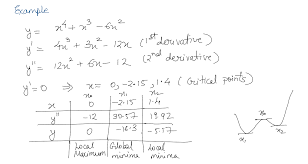 Example
y = x⁴ + x³ - 6x²
y' = 4x³ + 3x² - 12x (1st derivative)
y'' = 12x² + 6x - 12 (2nd derivative)
y' = 0 ⇒ x = 0, -2.15, 1.4 (Critical points)
x₀ x₁ x₂
x 0 -2.15 1.4
y'' -12 30.57 19.92
y 0 -16.3 -5.17
Local Maximum Global minima local minima
x₀
x₁ x₂